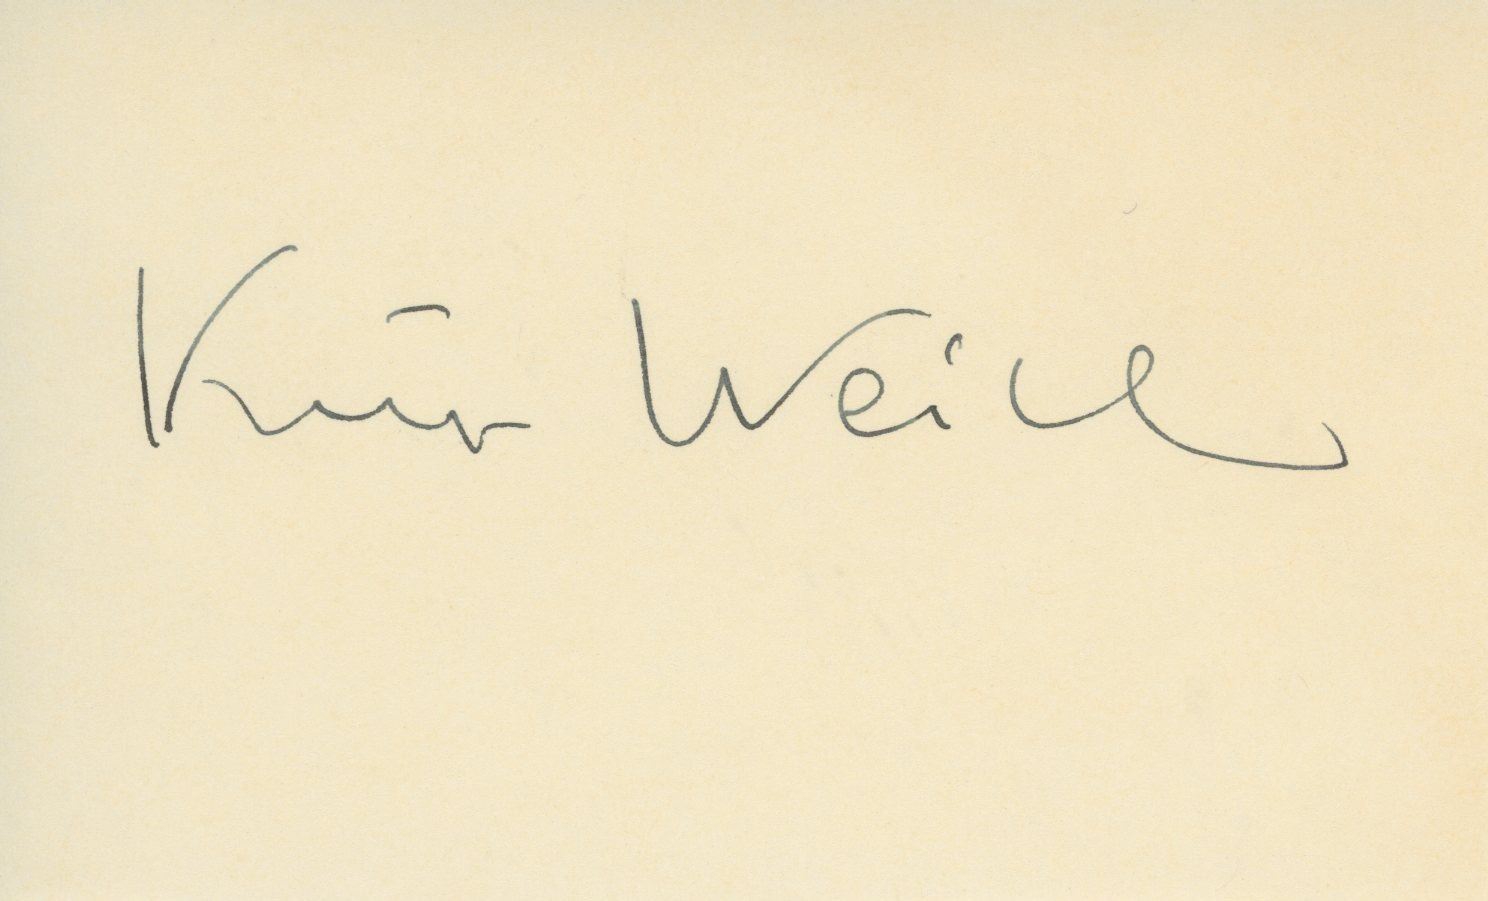 Kurt Weill